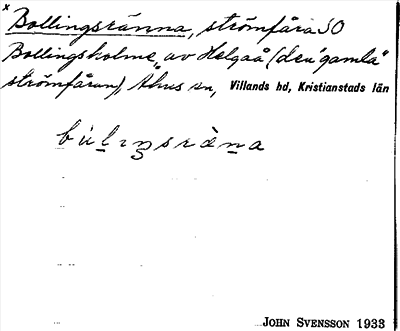 x
Bollingsränna, strömfåra SO
Bollingsholme av Helgaå (den "gamla"
strömfåran), Åhus sn, Villands hd, Kristianstads län
John Svensson 1933